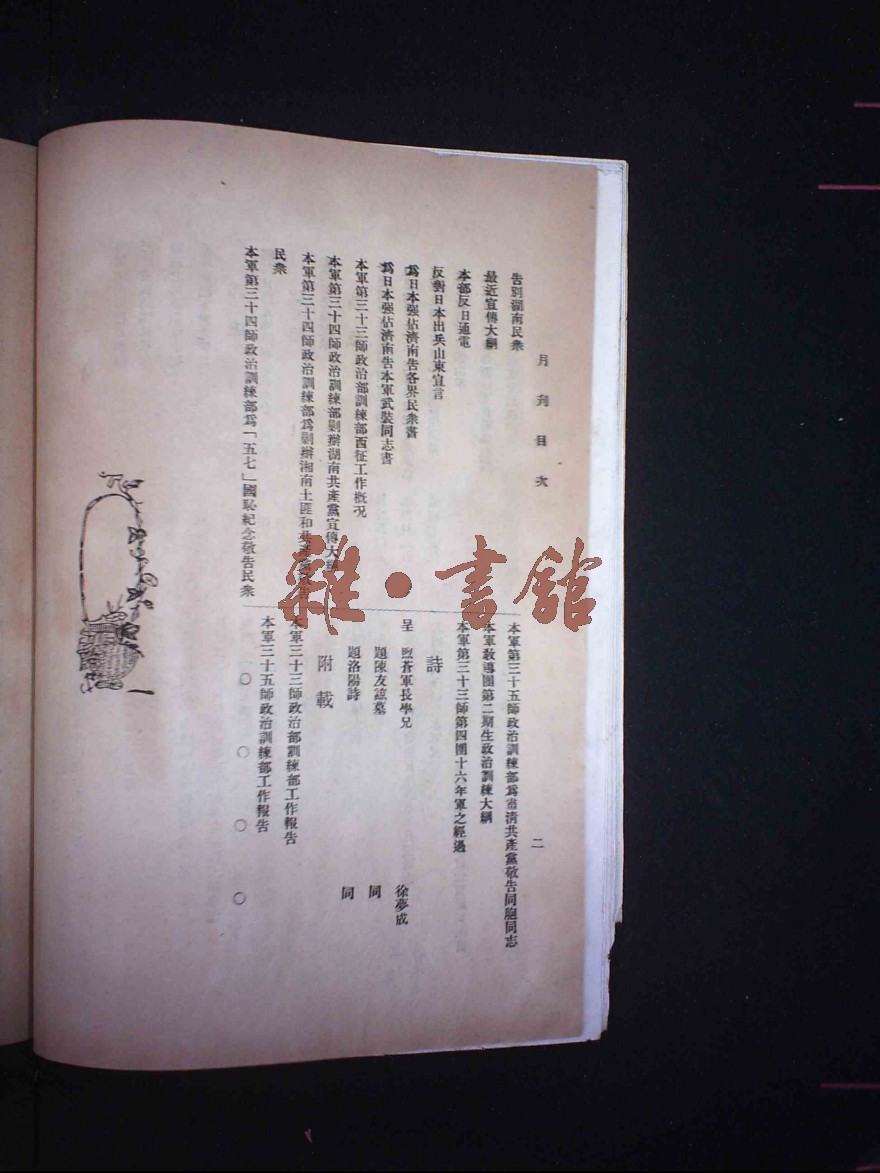 月刊目次
二
告別湖南民衆
最近宣傳大綱
本部反日通電
反對日本出兵山東宣言
爲日本强佔濟南告各界民衆書
爲日本强佔濟南告本軍武裝同志書
本軍第三十三師政治部訓練部西征工作槪況
本軍第三十四師政治訓練部剿辦湖南共產黨宣傳大綱
本軍第三十四師政治訓練部爲剿辦湘南土匪和共產黨敬告
民衆
本軍第三十四師政治訓練部爲「五七」國恥紀念敬告民衆
本軍第三十五師政治訓練部爲肅清共產黨敬告同胞同志
本軍敎導團第二期生政治訓練大綱
本軍第三十三師第四團十六年軍之經過
詩
呈 煦蒼軍長學兄 徐夢成
題陳友諒墓 同
題洛陽詩 同
附載
本軍三十三師政治部訓練部工作報告
本軍三十五師政治訓練部工作報告
〇 〇 〇 〇
雜·書館